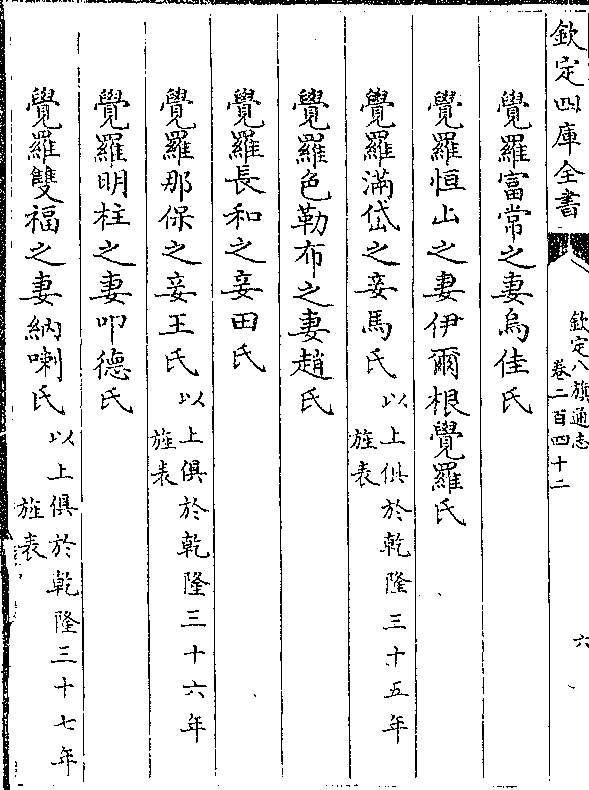 欽定四庫全書
欽定八旗通志
卷二百四十二
六
覺羅富常之妻烏佳氏
覺羅恒山之妻伊爾根覺羅氏
覺羅滿岱之妾馬氏以上俱於乾隆三十五年旌表
覺羅色勒布之妻趙氏
覺羅長和之妾田氏
覺羅那保之妾王氏以上俱於乾隆三十六年旌表
覺羅明柱之妻叩德氏
覺羅雙福之妻納喇氏以上俱於乾隆三十七年旌表